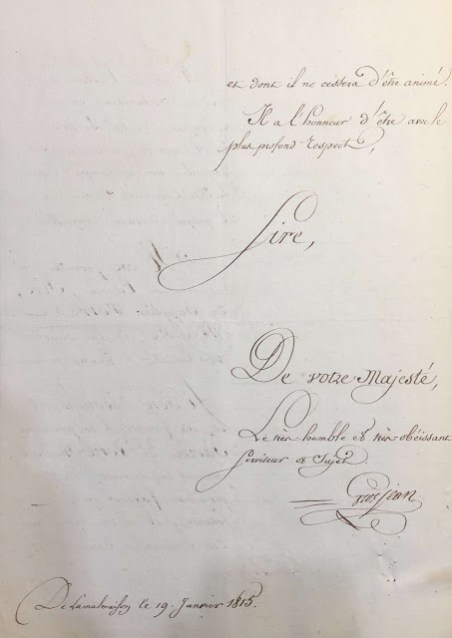 et dont il ne cessera d'être animé.
Il a l'honneur d'être avec le
plus profond respect,
Sire,
De votre Majesté,
Le très humble et très obéissant
Serviteur et Sujet
De Lamalmaison le 19. Janvier 1815.